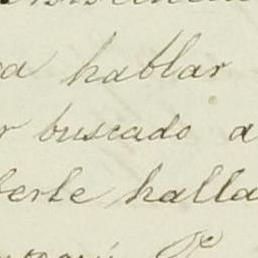 a hablar
r buscado a
berle halla